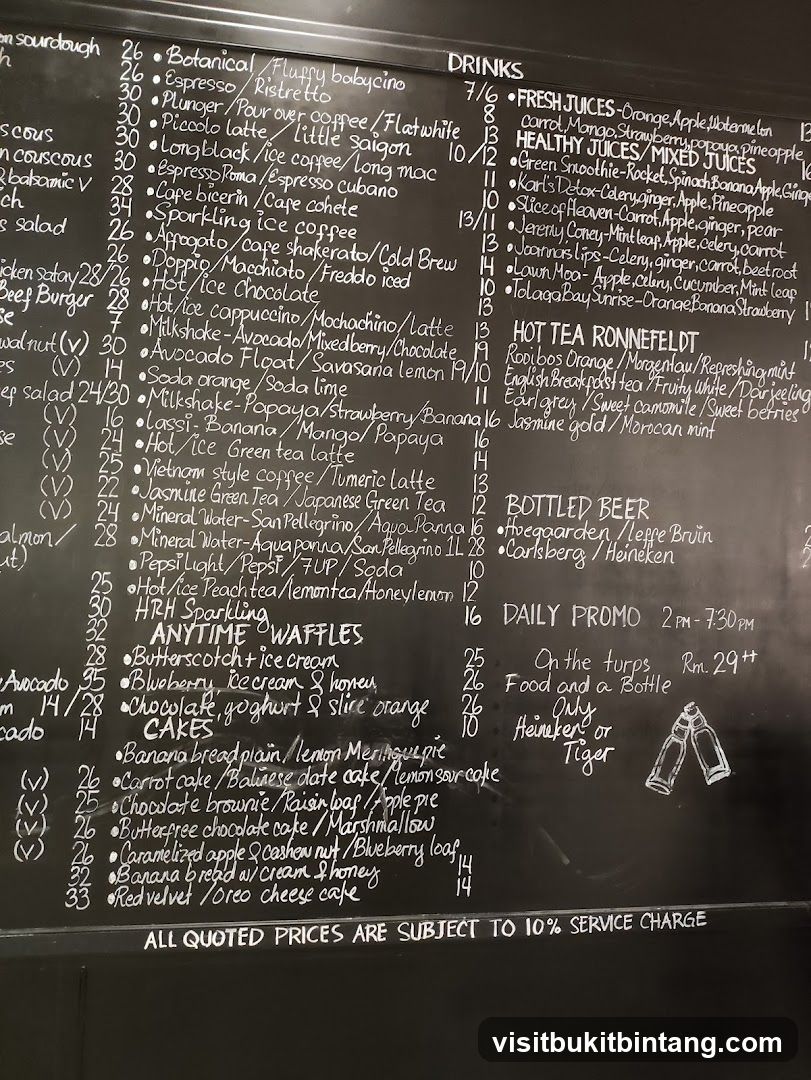 on sourdough 26
h 26
30
30
scous 30
n couscous 30
balsamic V 28
ich 34
s salad 26
26
icken satay 28/26
Beef Burger 28
se 7
walnut (v) 30
es (V) 14
salad 24/30
(V) 16
se (V) 24
(V) 25
(V) 22
(V) 24
almon/ 28
ut)
25
30
32
28
Avocado 35
m 14/28
cado 14
(v) 26
(v) 25
(v) 26
(v) 26
32
33
• Botanical / Fluffy babycino 7/6
• Espresso / Ristretto 8
• Plunger / Pour over coffee / Flat white 13
• Piccolo latte / little saigon 10/12
• Long black / ice coffee / Long mac 11
• Espresso Roma / Espresso cubano 10
• Cafe bicerin / Cafe cohete 13/11
• Sparkling ice coffee 13
• Affogato / cafe shakerato / Cold Brew 14
• Doppio / Macchiato / Freddo iced 10
• Hot / ice Chocolate 13
• Hot / ice cappuccino / Mochachino / latte 13
• Milkshake - Avocado / Mixedberry / Chocolate 19
• Avocado Float / Savasana lemon 19/10
• Soda orange / Soda lime 11
• Milkshake - Papaya / Strawberry / Banana 16
• Lassi - Banana / Mango / Papaya 16
• Hot / ice Green tea latte 14
• Vietnam style coffee / Tumeric latte 13
• Jasmine Green Tea / Japanese Green Tea 12
• Mineral Water - San Pellegrino / Aqua Panna 16
• Mineral Water - Aqua panna / San Pellegrino 1L 28
• Pepsi Light / Pepsi / 7UP / Soda 10
• Hot / ice Peach tea / lemon tea / Honey lemon 12
HRH Sparkling 16
ANYTIME WAFFLES
• Butterscotch + ice cream 25
• Blueberry, ice cream & honey 26
• Chocolate, yoghurt & slice orange 26
CAKES 10
• Banana bread plain / lemon Meringue pie
• Carrot cake / Balinese date cake / lemon sour cake
• Chocolate brownie / Raisin loaf / Apple pie
• Butterfree chocolate cake / Marshmallow
• Caramelized apple & cashew nut / Blueberry loaf
• Banana bread w/ cream & honey 14
• Red velvet / Oreo cheese cake 14
DRINKS
• FRESH JUICES - Orange, Apple, Watermelon
carrot, Mango, Strawberry, papaya, pineapple
HEALTHY JUICES / MIXED JUICES
• Green Smoothie - Rocket, Spinach Banana Apple, Ginge
• Karl's Detox - Celery, ginger, Apple, Pineapple
• Slice of Heaven - Carrot, Apple, ginger, pear
• Jeremy, Coney - Mint leaf, Apple, celery, carrot
• Joannas lips - Celery, ginger, carrot, beetroot
• Lawn Moo - Apple, celery, Cucumber, Mint leaf
• Tolaga Bay Sunrise - Orange, Banana, Strawberry
HOT TEA RONNEFELDT
Rooibos Orange / Morgentau / Refreshing mint
English Breakfast tea / Fruity White / Darjeeling
Earl grey / Sweet camomile / Sweet berries
Jasmine gold / Morocan mint
BOTTLED BEER
• Hoegaarden / Leffe Bruin
• Carlsberg / Heineken
DAILY PROMO 2 PM - 7:30 PM
On the turps Rm. 29++
Food and a Bottle
Only
Heineken or
Tiger
ALL QUOTED PRICES ARE SUBJECT TO 10% SERVICE CHARGE
visitbukitbintang.com